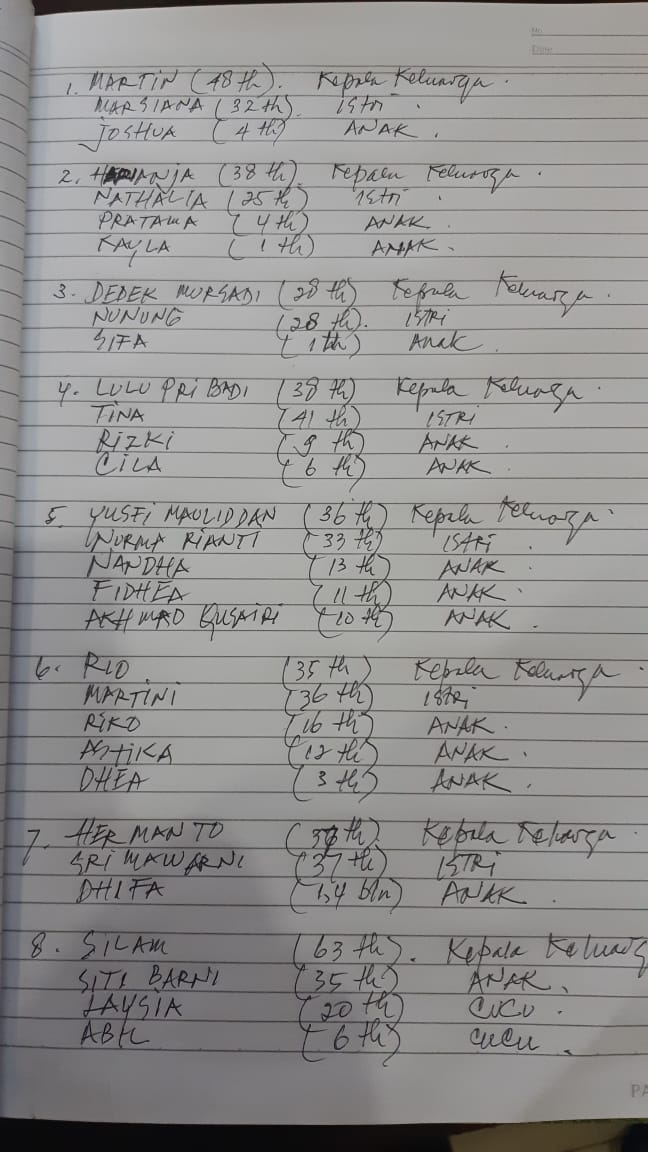 No
Date
1. MARTIN (48 th). Kepala Keluarga.
MARSIANA (32 th). istri.
JOSHUA (4 th) ANAK.
2. (38 th). Kepala Keluarga.
NATHALIA (25 th) istri.
PRATAMA (4 th) ANAK.
KAYLA (1 th) ANAK.
3. DEDEK MURSADI (28 th) Kepala Keluarga.
NUNUNG (28 th). ISTRI
SIFA (1 th) Anak.
4. LULU PRIBADI (38 th) Kepala Keluarga.
TINA (41 th) ISTRI
RIZKI (9 th) ANAK.
CILA (6 th) ANAK.
5. YUSFI MAULIDDAN (36 th) Kepala Keluarga.
NURMA RIANTI (33 th) ISTRI.
NANDHA (13 th) ANAK.
FIDHEA (11 th) ANAK.
AKHMAD QUSAIRI (10 th) ANAK.
6. RIO (35 th) Kepala Keluarga.
MARTINI (36 th) ISTRI
RIKO (16 th) ANAK.
ASTIKA (12 th) ANAK.
DHEA (3 th) ANAK.
7. HERMANTO Kepala Keluarga.
SRI MAWARNI (37 th) ISTRI
DHIFA (1,4 bln) ANAK.
8. SILAM (63 th). Kepala Keluarg
SITI BARNI (35 th) ANAK.
(20 th) CUCU.
(6 th) CUCU.
PA